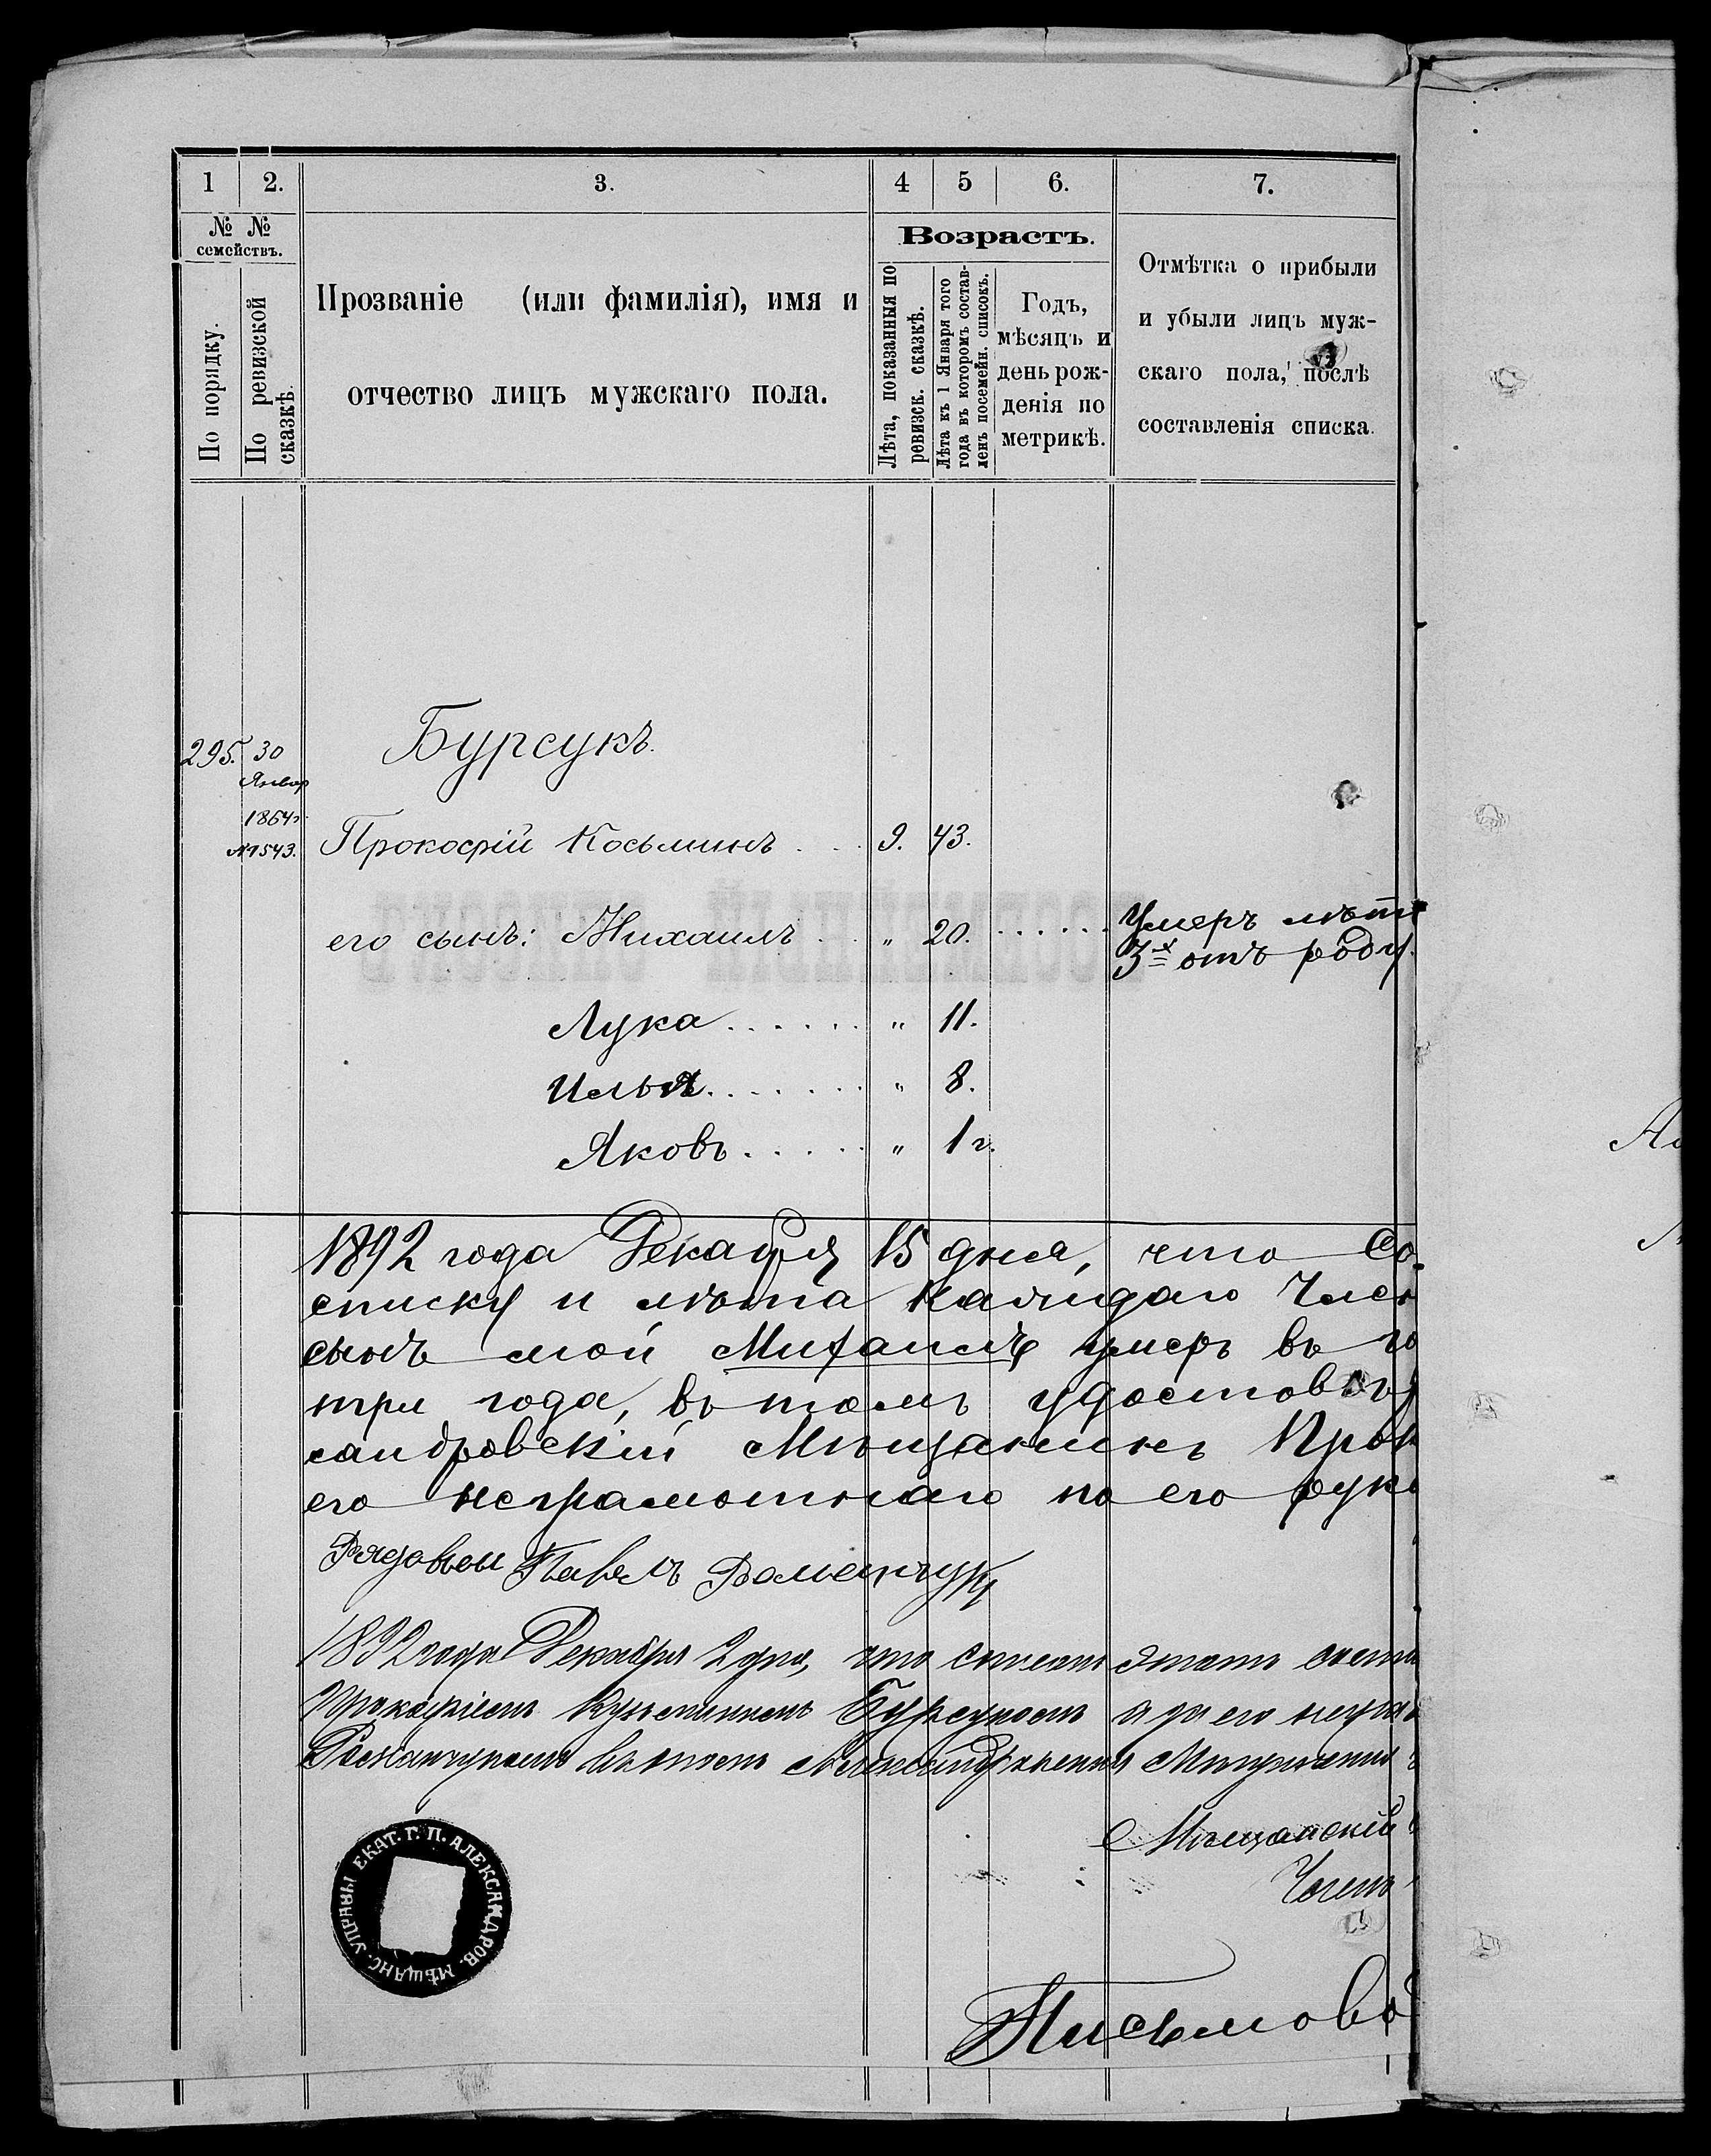 1 2. 3. 4 5 6. 7.
№ №
семействъ.
По порядку.
По ревизской
сказкѣ.
Прозваніе (или фамилія), имя и
отчество лицъ мужскаго пола.
Возрастъ.
Лѣта, показанныя по
ревизск. сказкѣ.
Лѣта къ 1 Января того
года въ которомъ состав-
ленъ посемейн. списокъ.
Годъ,
мѣсяцъ и
день рож-
денія по
метрикѣ.
Отмѣтка о прибыли
и убыли лицъ муж-
скаго пола, послѣ
составленія списка.
295. 30 Бурсукъ.
Январ
1864г.
№1543. Прокофій Косьминъ . . . 9. 43.
его сынъ: Михаилъ . . „ 20. . . . . . . Умеръ лѣтъ
3х отъ роду.
Лука . . . . . . „ 11.
Илья . . . . . . . „ 8.
Яковъ . . . . . „ 1 г.
1892 года Декабря 15 дня, что Со
списку и лѣта каждаго Член
сынъ мой Михаилъ умеръ въ
три года, въ томъ удостовѣ
сандровскій Мѣщанинъ Прок
его неграмотнаго по его рук
Рядовой Павелъ
1892 года Декабря 2 дня, что списокъ этотъ
Прокофіемъ Кузьминымъ Бурсукомъ а за его негра
въ томъ Александровская Мѣщанская
Мѣщанскій
Члены
Письмово
УПРАВЫ ЕКАТ. Г. П. АЛЕКСАНДРОВ. МѢЩАНС.